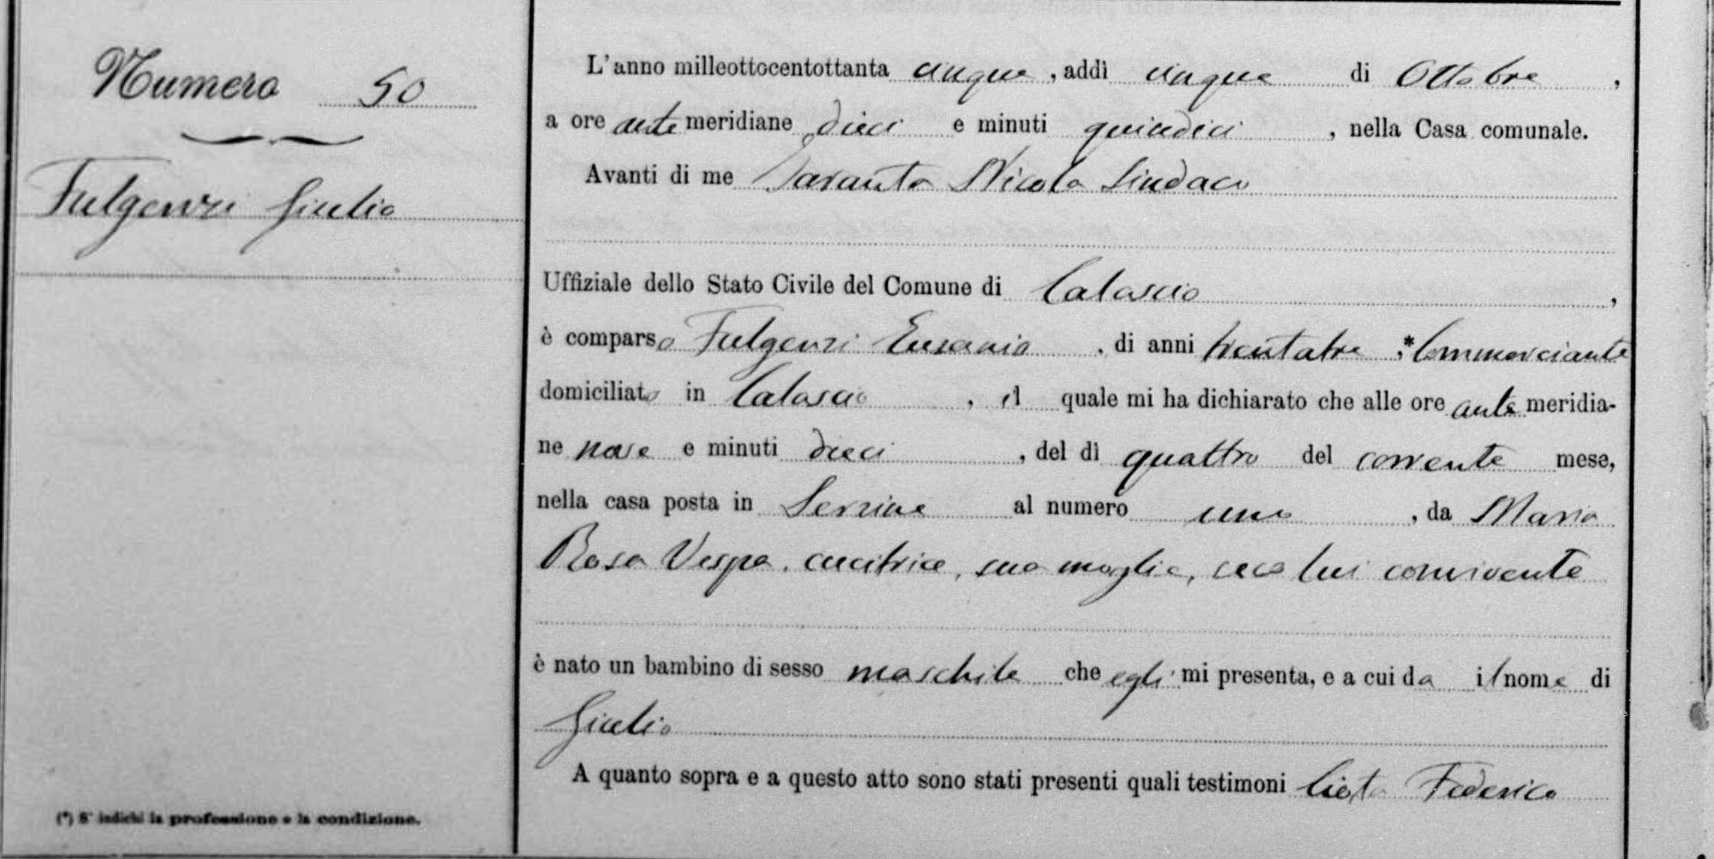 Numero 50
Fulgenzi Giulio
L'anno milleottocentottanta cinque, addì cinque di Ottobre,
a ore ante meridiane dieci e minuti quindici, nella Casa comunale.
Avanti di me Taranta Nicola Sindaco
Uffiziale dello Stato Civile del Comune di Calascio,
è comparso Fulgenzi Eusanio, di anni trentatre, * Commerciante
domiciliato in Calascio, il quale mi ha dichiarato che alle ore ante meridia-
ne nove e minuti dieci, del dì quattro del corrente mese,
nella casa posta in al numero uno, da Maria
Rosa Vespa, cucitrice, sua moglie, seco lui convivente
è nato un bambino di sesso maschile che egli mi presenta, e a cui da il nome di
Giulio
A quanto sopra e a questo atto sono stati presenti quali testimoni Federico
(*) S' indichi la professione e la condizione.